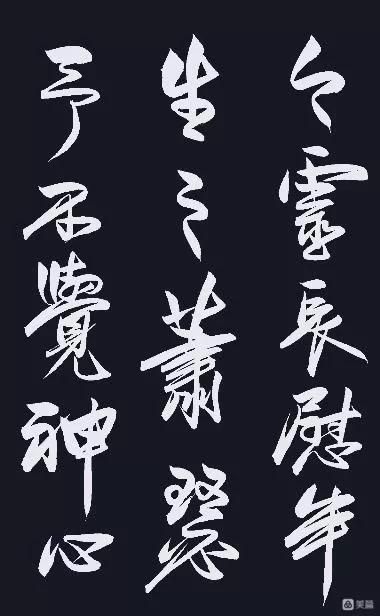 之靈長慰年
生之蕭瑟
予不覺神心
美篇